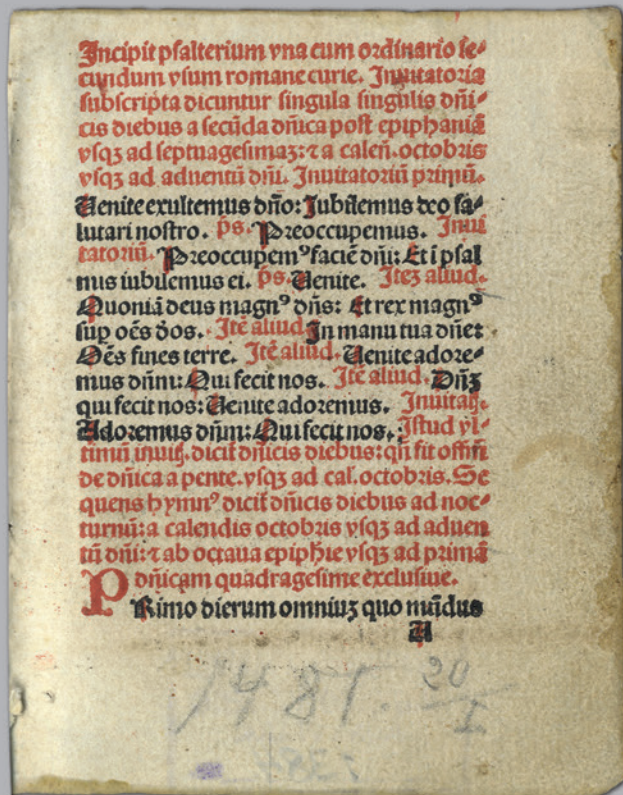 Incipit psalterium vna cum ordinario se⸗
cundum vsum romane curie. Inuitatoria
subscripta dicuntur singula singulis dñi⸗
cis diebus a secūda dñica post epiphaniā
vsqꝫ ad septuagesimaꝫ: ⁊ a caleñ. octobris
vsqꝫ ad aduentū dñi. Inuitatoriū primū.
Uenite exultemus dño: Iubilemus deo sa⸗
lutari nostro. p̄s. Preoccupemus. Inui
tatoriū. Preoccupemꝰ faciē dñi: Et ī psal
mus iubilemus ei. p̄s. Uenite. Iteꝫ aliud.
Quoniā deus magnꝰ dñs: Et rex magnꝰ
suꝑ oēs ďos. Itē aliud. In manu tua dñe:
Oēs fines terre. Itē aliud. Uenite adore⸗
mus dñm: Qui fecit nos. Itē aliud. Dñꝫ
qui fecit nos: Uenite adoremus. Inuitaꝶ.
Adoremus dñm: Qui fecit nos.: Istud vl⸗
timū inuiꝶ. dicit̄ dñicis diebus: qñ fit offm̄
de dñica a pente. vsqꝫ ad cal. octobris. Se
quens hymnꝰ dicit̄ dñicis diebus ad noc⸗
turnū: a calendis octobris vsqꝫ ad aduen
tū dñi: ⁊ ab octaua epiphie vsqꝫ ad primā
dñicam quadragesime exclusiue.
PRimo dierum omniuꝫ quo mūdus
A
1481. 20/I